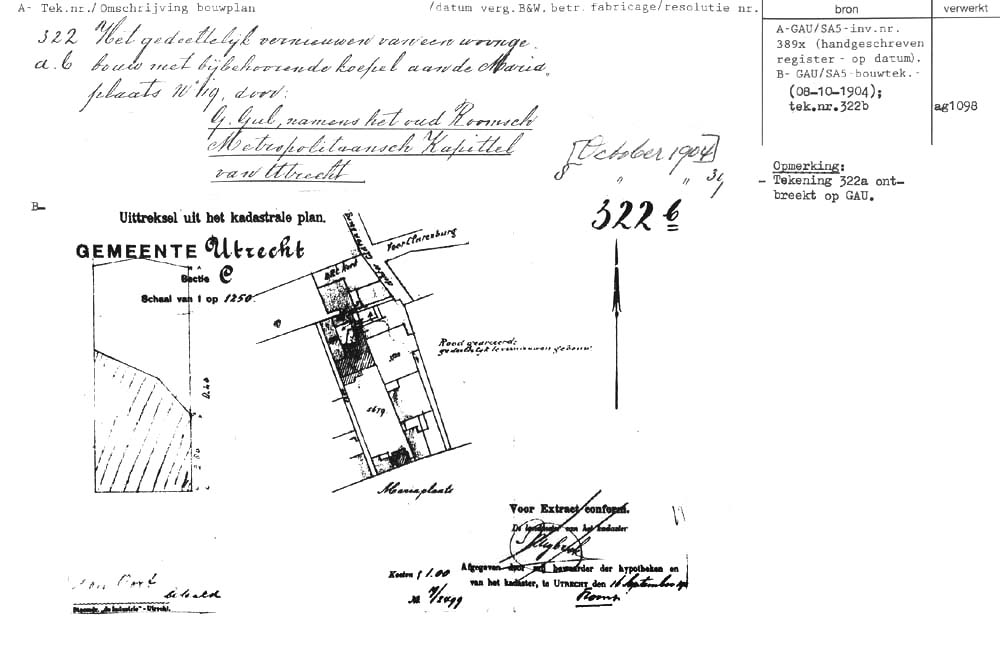 A- Tek.nr./Omschrijving bouwplan /datum verg.B&W. betr. fabricage/resolutie nr. bron verwerkt
322 Het gedeeltelijk vernieuwen van een woonge-
a.b bouw met bijbehoorende koepel aan de Maria-
plaats No 19, door:
G. Gul, namens het oud Roomsch
Metropolitaansch Kapittel
van Utrecht
[October 1904]
8 " " 31
A-GAU/SA5-inv.nr.
389x (handgeschreven
register - op datum).
B- GAU/SA5-bouwtek.-
(08-10-1904);
tek.nr.322b
ag1098
Opmerking:
- Tekening 322a ont-
breekt op GAU.
B-
Uittreksel uit het kadastrale plan.
GEMEENTE Utrecht
Sectie C
Schaal van 1 op 1250.
322 b
Voor Clarenburg
Rood gearceerd:
gedeeltelijk te vernieuwen gebouw.
Mariaplaats
Voor Extract conform.
De landmeter van het kadaster
Afgegeven door mij bewaarder der hypotheken en
van het kadaster, te UTRECHT, den 16 September
Kosten f 1.00
No.
Steendr. „de Industrie" - Utrecht.